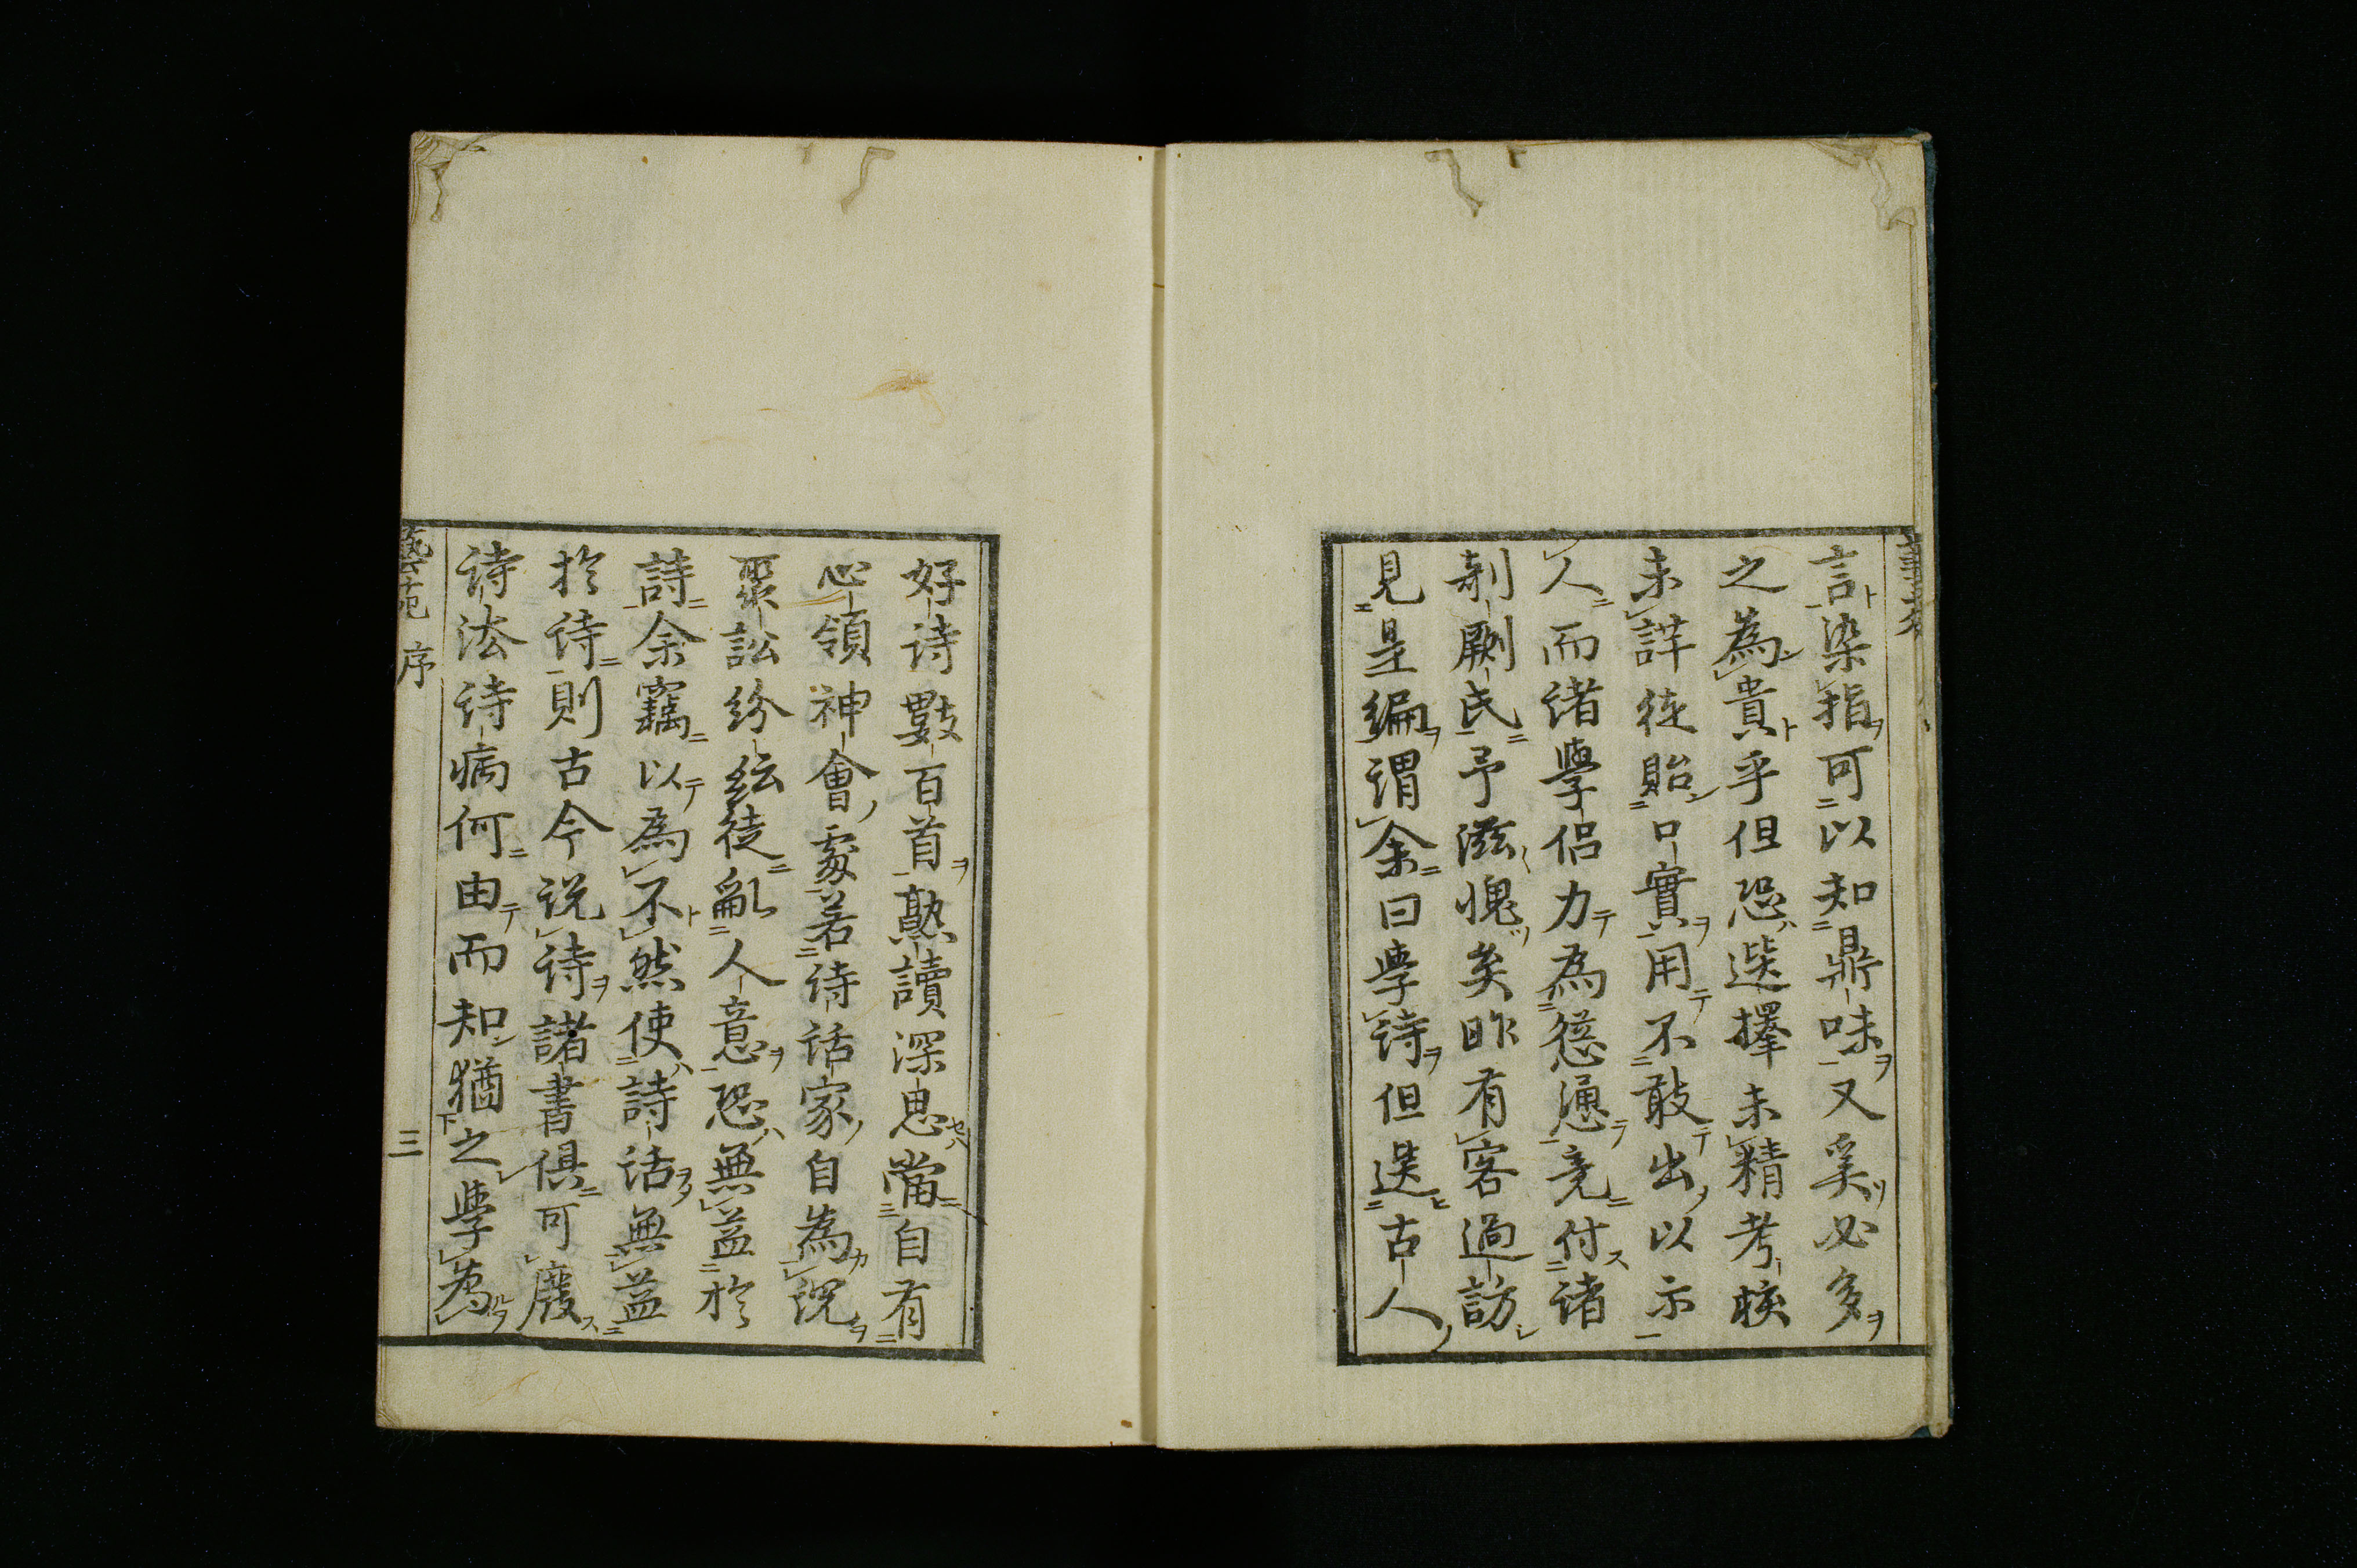 言染指可以知鼎味又奚必多
之為貴乎但恐選擇未精考挍
未詳徒貽口實用不敢出以示
人而諸學侶力為慫慂竟付諸
剞劂氏予滋愧矣昨有客過訪
見是編謂余曰學詩但選古人
好詩數百首熟讀深思當自有
心領神會處若詩話家自為說
聚訟紛紜徒亂人意恐無益於
詩余竊以為不然使詩話無益
於詩則古今說詩諸書俱可廢
詩法詩病何由而知猶之學為
藝苑 序
三